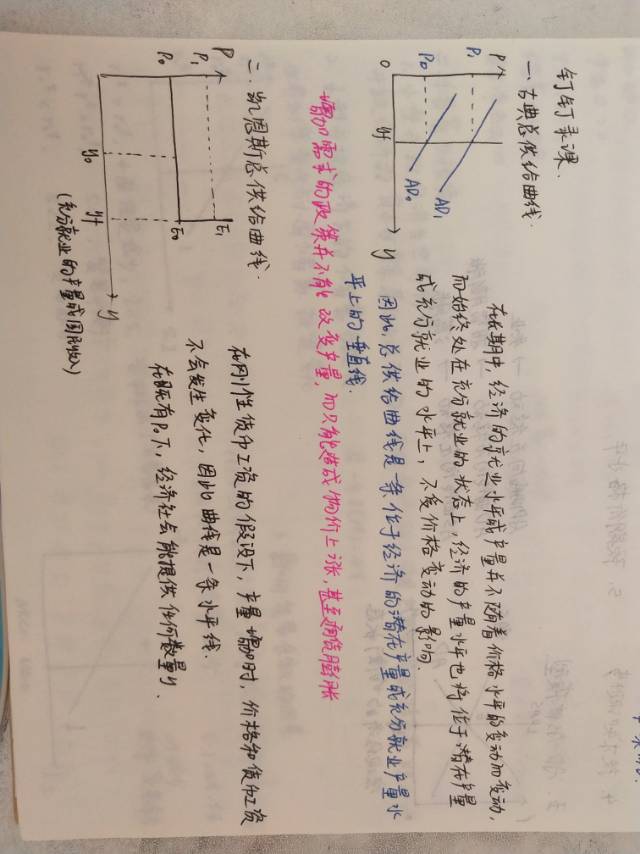 钉钉录课.
一、古典总供给曲线.
P
P1
P0
O
yf
y
AD1
AD0
在长期中,经济的就业水平或产量并不随着价格水平的变动而变动,
而始终处在充分就业的状态上,经济的产量水平也将位于潜在产量
或充分就业的水平上,不受价格变动的影响.
因此,总供给曲线是一条位于经济的潜在产量或充分就业产量水
平上的垂直线.
增加需求的政策并不能改变产量,而只能造成物价上涨,甚至通货膨胀
二、凯恩斯总供给曲线.
P
P1
P0
E1
E0
y0
yf
y
(充分就业的产量或国民收入)
在刚性货币工资的假设下,产量增加时,价格和货币工资
不会发生变化,因此曲线是一条水平线.
在既有P0下,经济社会能提供任何数量y.